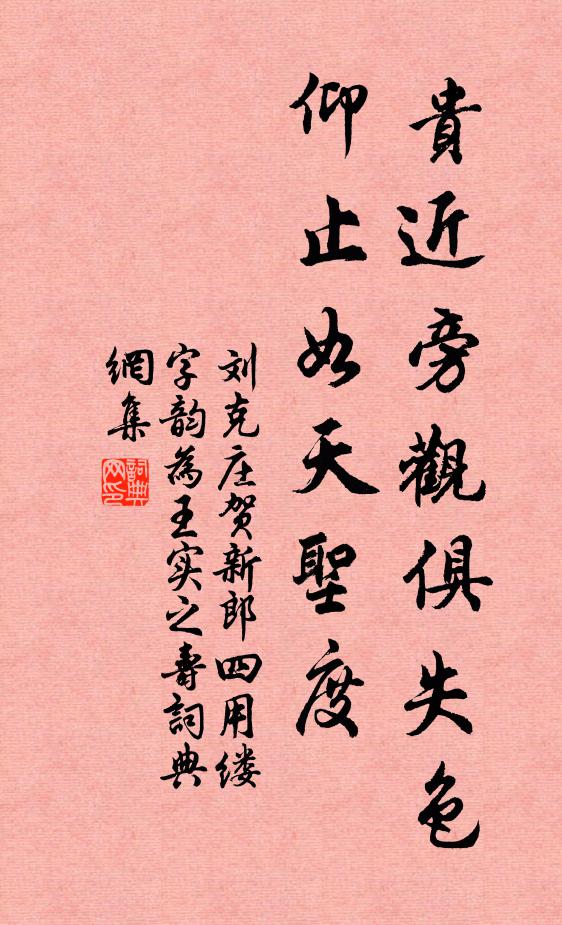 貴近旁觀俱失色
仰止如天聖度
刘克庄贺新郎四用缕
字韵為王实之壽詞典
網集
詞典
网印